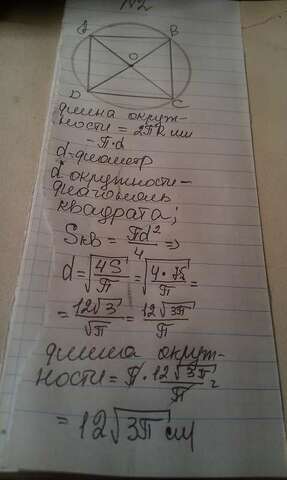 N2
A B
O
D C
длина окруж-
ности = 2πR или
= π·d
d - диаметр
d окружности -
диагональ
квадрата;
Sкв = πd²/4 =>
d = √(4S/π) = √(4·/π) =
= 12√3/√π = 12√3π/π
длина окруж-
ности = π · 12√3π/π =
= 12√3π см